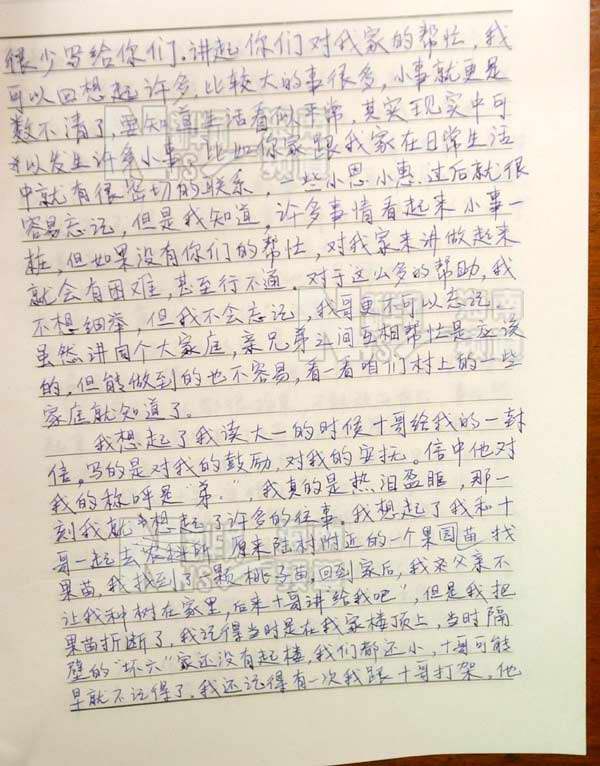 很少写给你们.讲起你们对我家的帮忙,我
可以回想起许多,比较大的事很多,小事就更是
数不清了,要知道生活看似平常,其实现实中可
以发生许多小事,比如你家跟我家在日常生活
中就有很密切的联系,一些小恩小惠.过后就很
容易忘记,但是我知道,许多事情看起来小事一
桩,但如果没有你们的帮忙,对我家来讲做起来
就会有困难,甚至行不通.对于这么多的帮助,我
不想细举,但我不会忘记,我哥更不可以忘记.
虽然讲同个大家庭,亲兄弟之间互相帮忙是应该
的,但能做到的也不容易,看一看咱们村上的一些
家庭就知道了.
我想起了我读大一的时候十哥给我的一封
信.写的是对我的鼓励,对我的实抚.信中他对
我的称呼是“弟.”,我真的是热泪盈眶,那一
刻我就想起了许多的往事.我想起了我和十
哥一起去农科所,原来陆村附近的一个果园苗找
果苗,我找到了一颗桃子苗,回到家后,我父亲不
让我种树在家里,后来十哥讲“给我吧”,但是我把
果苗折断了,我记得当时是在我家楼顶上,当时隔
壁的“坏六”家还没有起楼,我们都还小,十哥可能
早就不记得了.我还记得有一次我跟十哥打架,他